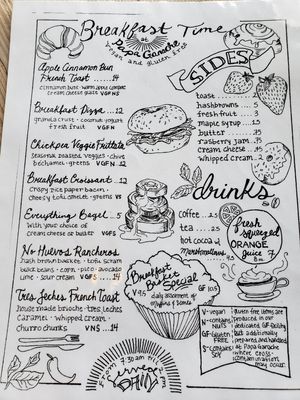 Breakfast Time
at
Papa Ganache
vegan and gluten free
Apple Cinnamon Bun
French Toast ...14
cinnamon bun · warm apple compote
cream cheese glaze VGFNS
Breakfast Pizza ...12
granola crust · coconut yogurt
fresh fruit VGFN
Chickpea Veggie Frittata
seasonal roasted veggies · chive
bechamel · greens VGFN 12
Breakfast Croissant ...12
crispy rice paper bacon
cheesy tofu omelet · greens VS
Everything Bagel .. 5
with your choice of
cream cheese or butter VGFS
No Huevos Rancheros
hash brown basket · tofu scram
black beans · corn · pico · avocado
lime · sour cream VGFS ....14
Tres Leches French Toast
house made brioche · tres leches
caramel · whipped cream
churro chunks VNS ...14
SIDES
toast
hashbrowns 5
fresh fruit 5
maple syrup
butter .75
raspberry jam .75
cream cheese .75
whipped cream 2
drinks
coffee ..2.5
tea .....2.5
hot cocoa 2
Marshmallows
fresh
squeezed
ORANGE
juice 7
8oz
Breakfast
Pie Bun
Special
V 9.5 GF 10.5
daily assortment of
muffins & scones
7:30am
V - vegan
N - contains
NUTS
GF - GLUTEN
FREE
S - contains
SOY
gluten free items are
produced in our
dedicated GF facility
but additionally
prepared and handled
at Papa Ganache
where cross-
contamination
may occur.